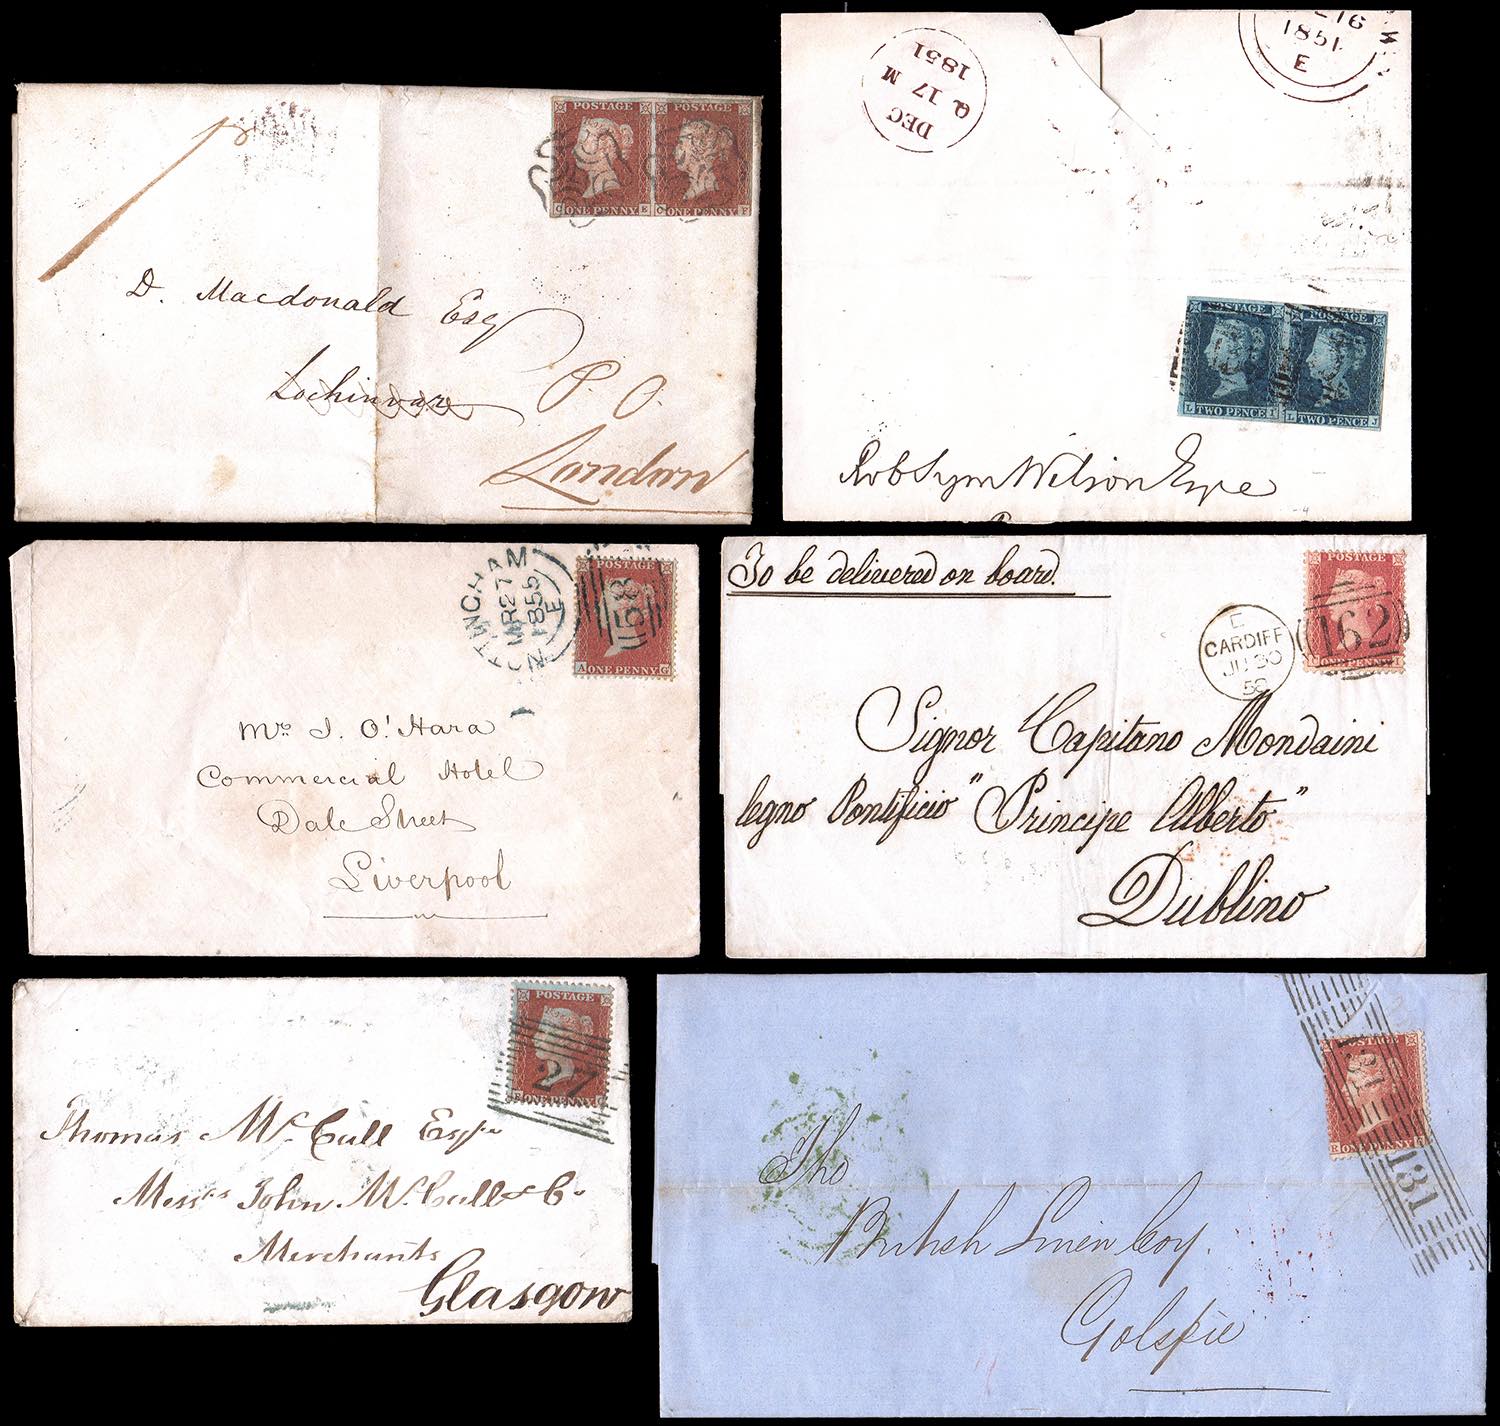 POSTAGE POSTAGE
C ONE PENNY E C ONE PENNY F
D. Macdonald Esq
Lochinvar P. O.
London
DEC
17
1851
16
1851
E
POSTAGE POSTAGE
L TWO PENCE I L TWO PENCE J
Rob Sym Wilson Esqre
MR 27
1855
E
158
POSTAGE
A ONE PENNY G
Mr. J. O'Hara
Commercial Hotel
Dale Street
Liverpool
To be delivered on board.
POSTAGE
162
ONE PENNY I
CARDIFF
JU 30
Signor Capitano Mondaini
legno Pontificio "Principe Alberto"
Dublino
POSTAGE
27
ONE PENNY
Thomas McCall Esqre
Messrs John McCall & Co
Merchants
Glasgow
POSTAGE
131
E ONE PENNY
131
The
British Linen Coy.
Golspie